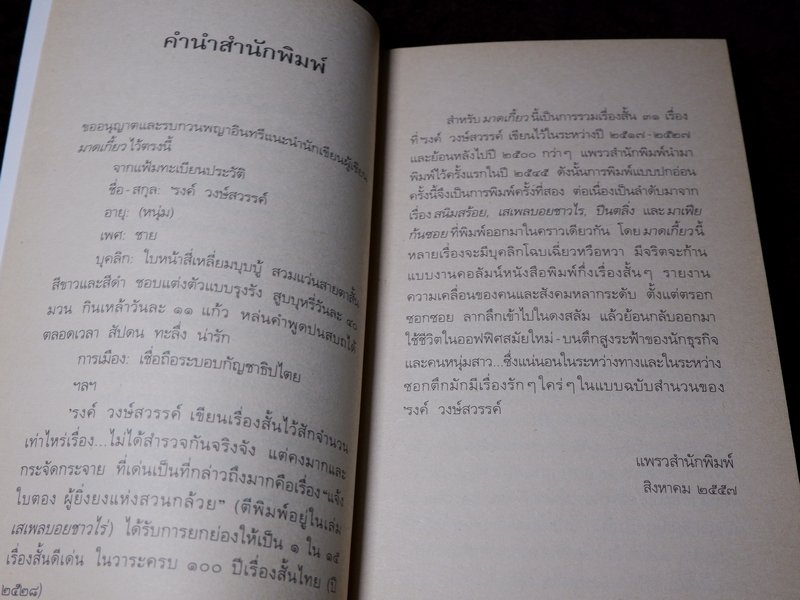 คำนำสำนักพิมพ์
ขออนุญาตและรบกวนพญาอินทรีแนะนำนักเขียนผู้เขียน
มาดเกี้ยว ไว้ตรงนี้
จากแฟ้มทะเบียนประวัติ
ชื่อ-สกุล: 'รงค์ วงษ์สวรรค์
อายุ: (หนุ่ม)
เพศ: ชาย
บุคลิก: ใบหน้าสี่เหลี่ยมบุบบู้ สวมแว่นสายตาสั้น
สีขาวและสีดำ ชอบแต่งตัวแบบรุงรัง สูบบุหรี่วันละ ๔๐
มวน กินเหล้าวันละ ๑๑ แก้ว หล่นคำพูดปนสบถได้
ตลอดเวลา สัปดน ทะลึ่ง น่ารัก
การเมือง: เชื่อถือระบอบกัญชาธิปไตย
ฯลฯ
'รงค์ วงษ์สวรรค์ เขียนเรื่องสั้นไว้สักจำนวน
เท่าไหร่เรื่อง...ไม่ได้สำรวจกันจริงจัง แต่คงมากและ
กระจัดกระจาย ที่เด่นเป็นที่กล่าวถึงมากคือเรื่อง "แจ้ง
ใบตอง ผู้ยิ่งยงแห่งสวนกล้วย" (ตีพิมพ์อยู่ในเล่ม
เสเพลบอยชาวไร่) ได้รับการยกย่องให้เป็น ๑ ใน ๑๕
เรื่องสั้นดีเด่น ในวาระครบ ๑๐๐ ปีเรื่องสั้นไทย (ปี
๒๕๒๘)
สำหรับ มาดเกี้ยว นี้เป็นการรวมเรื่องสั้น ๓๑ เรื่อง
ที่ 'รงค์ วงษ์สวรรค์ เขียนไว้ในระหว่างปี ๒๕๑๗-๒๕๒๗
และย้อนหลังไปปี ๒๕๐๐ กว่าๆ แพรวสำนักพิมพ์นำมา
พิมพ์ไว้ครั้งแรกในปี ๒๕๔๕ ดังนั้นการพิมพ์แบบปกอ่อน
ครั้งนี้จึงเป็นการพิมพ์ครั้งที่สอง ต่อเนื่องเป็นลำดับมาจาก
เรื่อง สนิมสร้อย, เสเพลบอยชาวไร่, ปีนตลิ่ง และ มาเฟีย
ก้นซอย ที่พิมพ์ออกมาในคราวเดียวกัน โดย มาดเกี้ยว นี้
หลายเรื่องจะมีบุคลิกโฉบเฉี่ยวหรือหวา มีจริตจะก้าน
แบบงานคอลัมน์หนังสือพิมพ์กึ่งเรื่องสั้นๆ รายงาน
ความเคลื่อนของคนและสังคมหลากระดับ ตั้งแต่ตรอก
ซอกซอย ลากลึกเข้าไปในดงสลัม แล้วย้อนกลับออกมา
ใช้ชีวิตในออฟฟิศสมัยใหม่-บนตึกสูงระฟ้าของนักธุรกิจ
และคนหนุ่มสาว...ซึ่งแน่นอนในระหว่างทางและในระหว่าง
ซอกตึกมักมีเรื่องรักๆ ใคร่ๆ ในแบบฉบับสำนวนของ
'รงค์ วงษ์สวรรค์
แพรวสำนักพิมพ์
สิงหาคม ๒๕๕๗